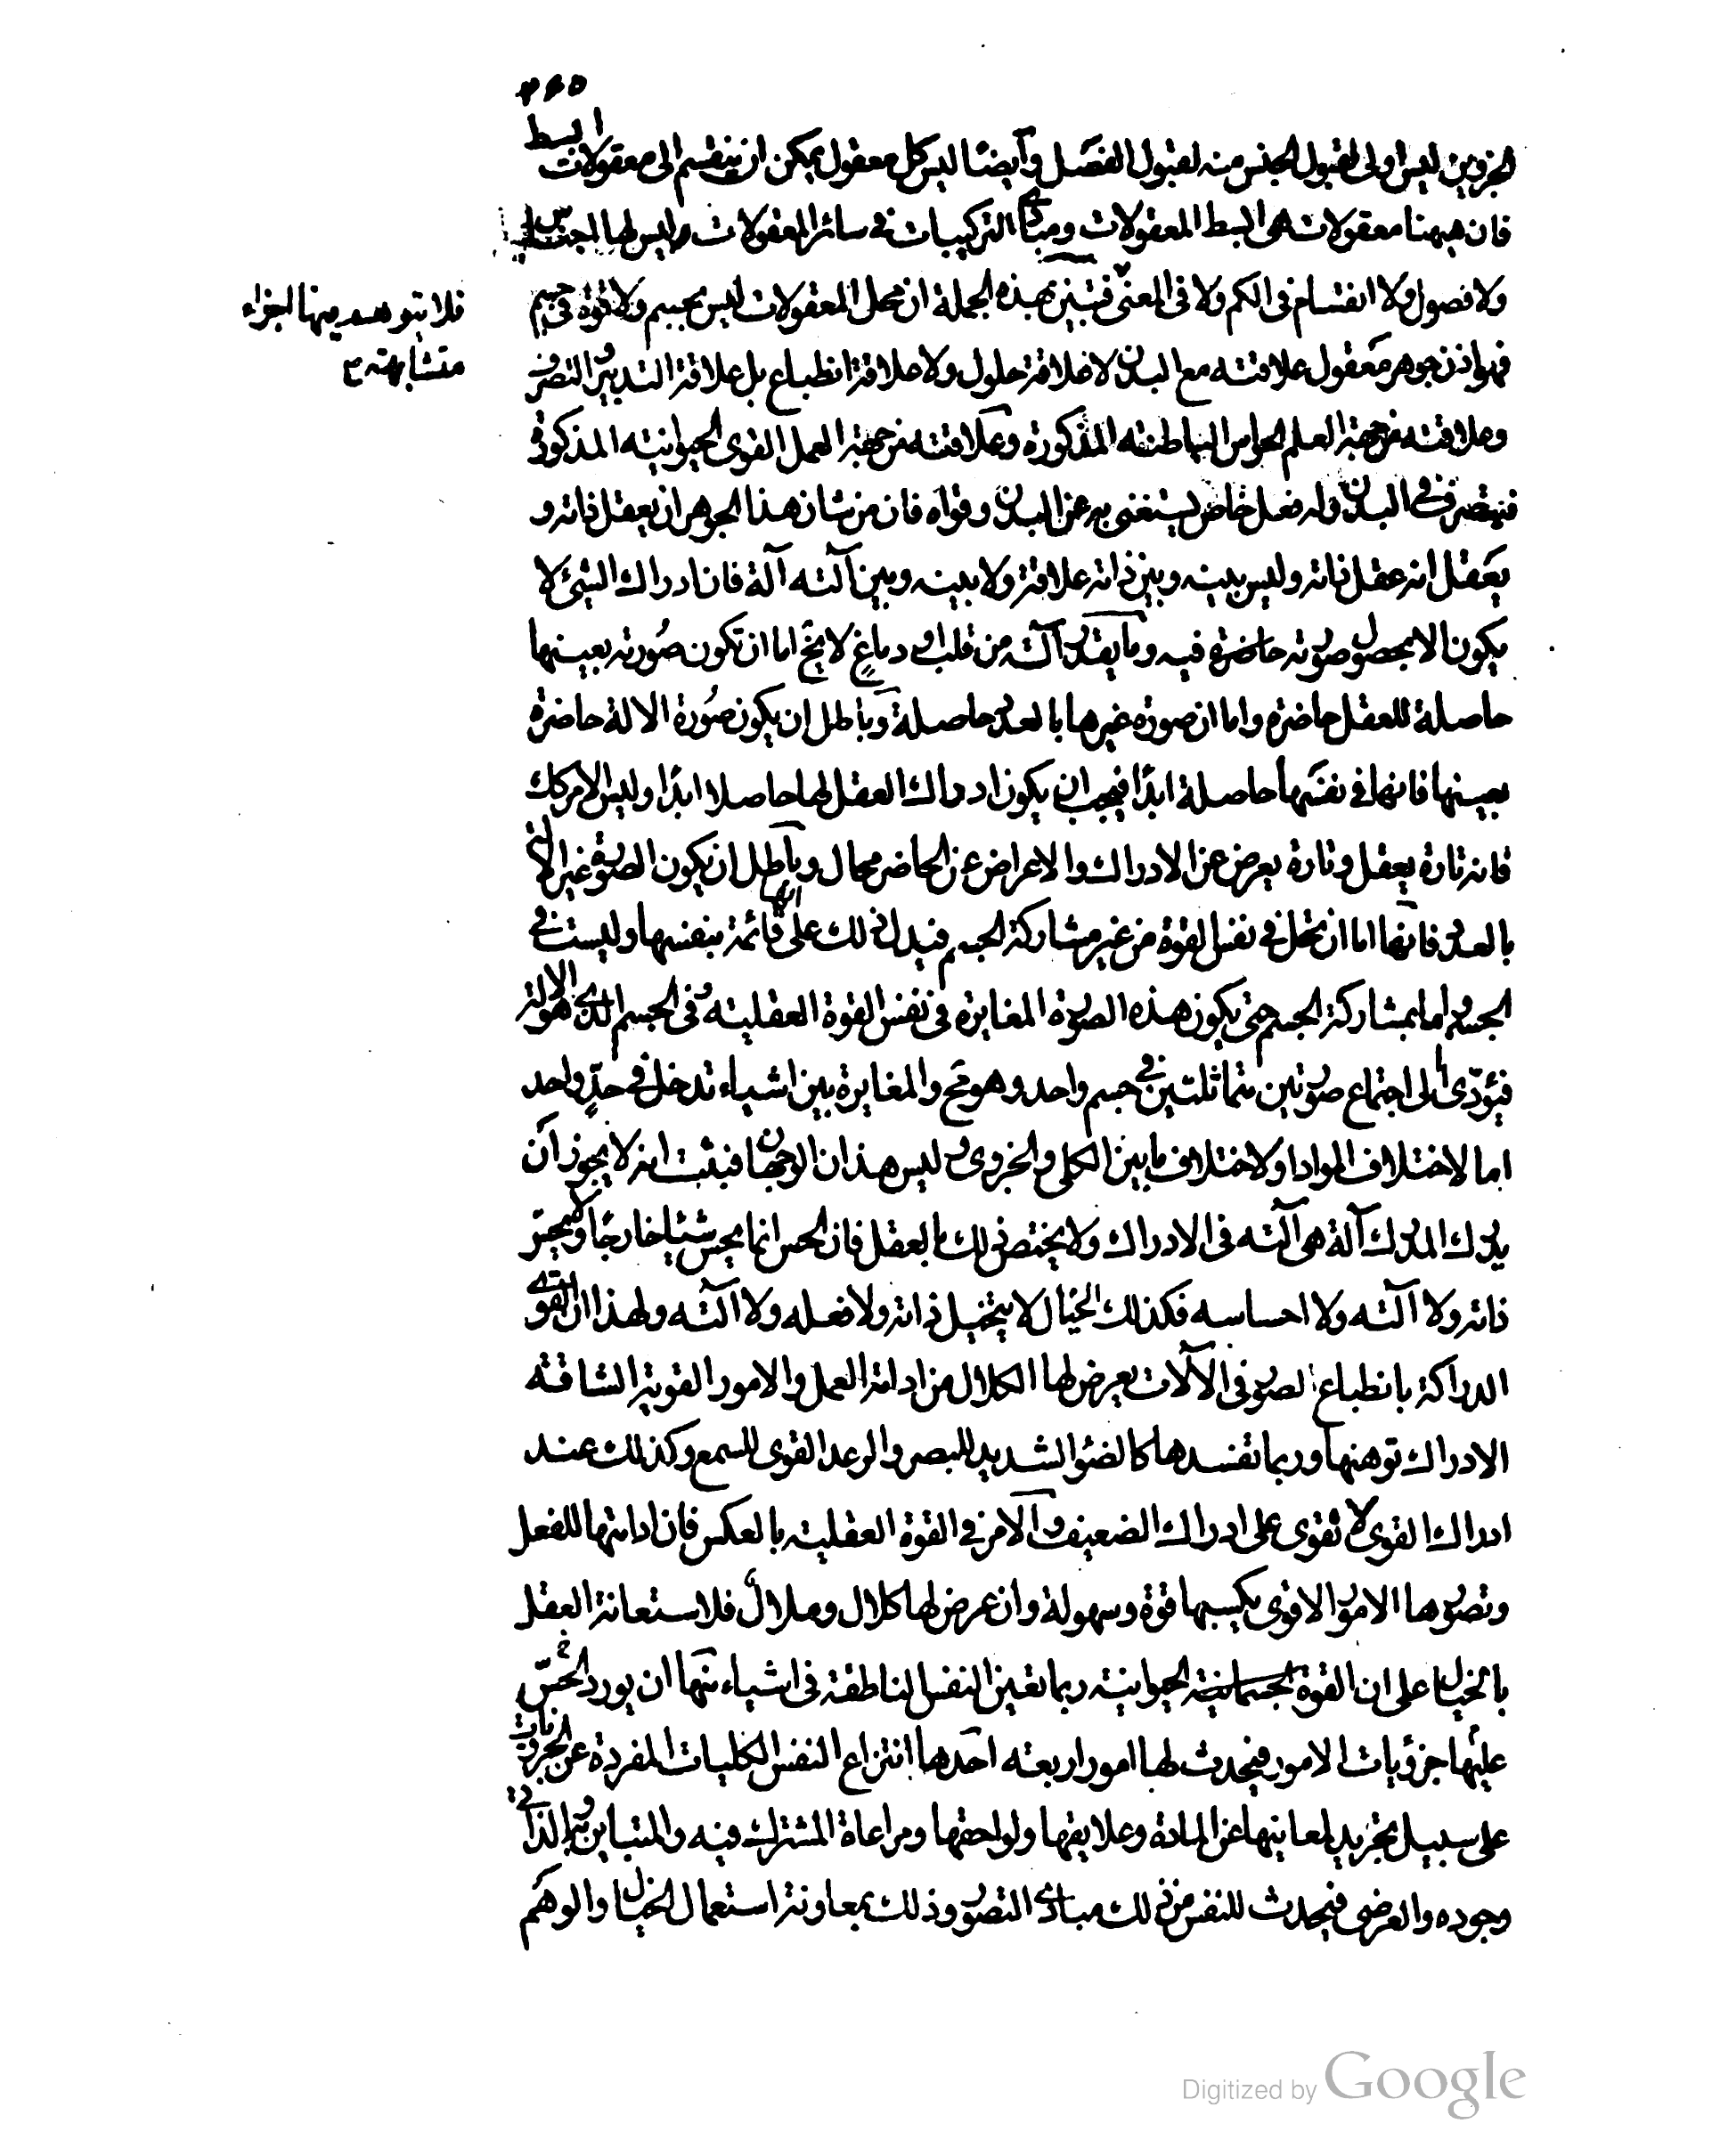 ٣٤٥
الجزوين ليس اولى لقبول الجنس منه لقبول الفصل وايضًا ليس كل معقول يمكن ان ينقسم الى معقولات ابسط
فان ههنا معقولات هى ابسط المعقولات ومبادى التركيبات فى سائر المعقولات وليس لها اجناس
ولا فصول ولا انقسام فى الكم ولا فى المعنى فتبين بهذه الجملة ان محل المعقولات ليس بجسم ولا قوة فى جسم
فلا يتوهم فيها اجزاء
متشابهة
فهو اذن جوهر معقول علاقته مع البدن لا علاقة حلول ولا علاقة انطباع بل علاقة التدبير والتصرف
وعلاقته من جهة العلم الحواس الباطنه المذكورة وعلاقته من جهة العمل القوى الحيوانيه المذكورة
فيتصرف فى البدن وله فعل خاص يستغنى به عن البدن وقواه فان من شان هذا الجوهر ان يعقل ذاته و
يعقل انه عقل ذاته وليس بينه وبين ذاته علاقة ولا بينه وبين آلته آلة فان ادراك الشئ لا
يكون الا بحصول صورته حاضرة فيه وما يقدر آلته من قلب او دماغٍ لا يخ اما ان تكون صُورته بعينها
حاصلة للعقل حاضرة واما ان صورة غيرها بالعدد حاصلة وباطل ان يكون صُورة الالة حاضرة
بعينها فانها فى نفسها حاصلة ابدًا فيجب ان يكون ادراك العقل لها حاصلا ابدًا وليس الامر كك
فانه تارة يعقل وتارة يعرض عن الادراك والاعراض عن الحاضر محال وباطل ان يكون الصورة غير الالة
بالعدد فانها اما ان تحل فى نفس القوة من غير مشاركة الجسم فيدل ذلك على انها قائمة بنفسها وليست فى
الجسم واما بمشاركة الجسم حتى يكون هذه الصورة المغايرة فى نفس القوة العقليته وفى الجسم الذى هو الالة
فيؤدّى الى اجتماع صورتين متماثلتين فى جسم واحد وهو مح والمغايرة بين اشياء تدخل فى حدٍّ واحد
اما لاختلاف المواد او لاختلاف ما بين الكلى والجزوى وليس هذان الوجهان فيثبت انه لا يجوز ان
يدرك المدرك آلة هى آلته فى الادراك ولا يختص ذلك بالعقل فان الحس انما يحس شيئا خارجًا ولا يحس
ذاته ولا آلته ولا احساسه فكذلك الخيال لا يتخيل ذاته ولا فعله ولا آلته ولهذا ان القوى
الدراكة بانطباع الصور فى الآلات يعرض لها الكلال من ادامة العمل والامور القوية الشاقة
الادراك توهنها وربما تفسدها كالضوء الشديد للبصر والرعد القوى للسمع وكذلك عند
ادراك القوى لا تقوى على ادراك الضعيف والامر فى القوة العقليته بالعكس فان ادامتها للفعل
وتصورها الامور الاقوى يكسبها قوة وسهولة وان عرض لها كلال وملال فلاستعانة العقل
بالخيال على ان القوة الحيوانية ربما تعين النفس الناطقة فى اشياء منها ان يورد الحسّ
عليها جزؤيات الامور فيحدث لها امور اربعته احدها انتزاع النفس الكليات المفردة عن الجزويات
على سبيل تجريد لمعانيها عن المادة وعلايقها ولواحقها ومراعاة المشترك فيه والمتباين به والذاتى
وجوده والعرضى فيحدث للنفس من ذلك مبادئ التصور وذلك بمعاونة استعمال الخيال والوهم
Digitized by Google